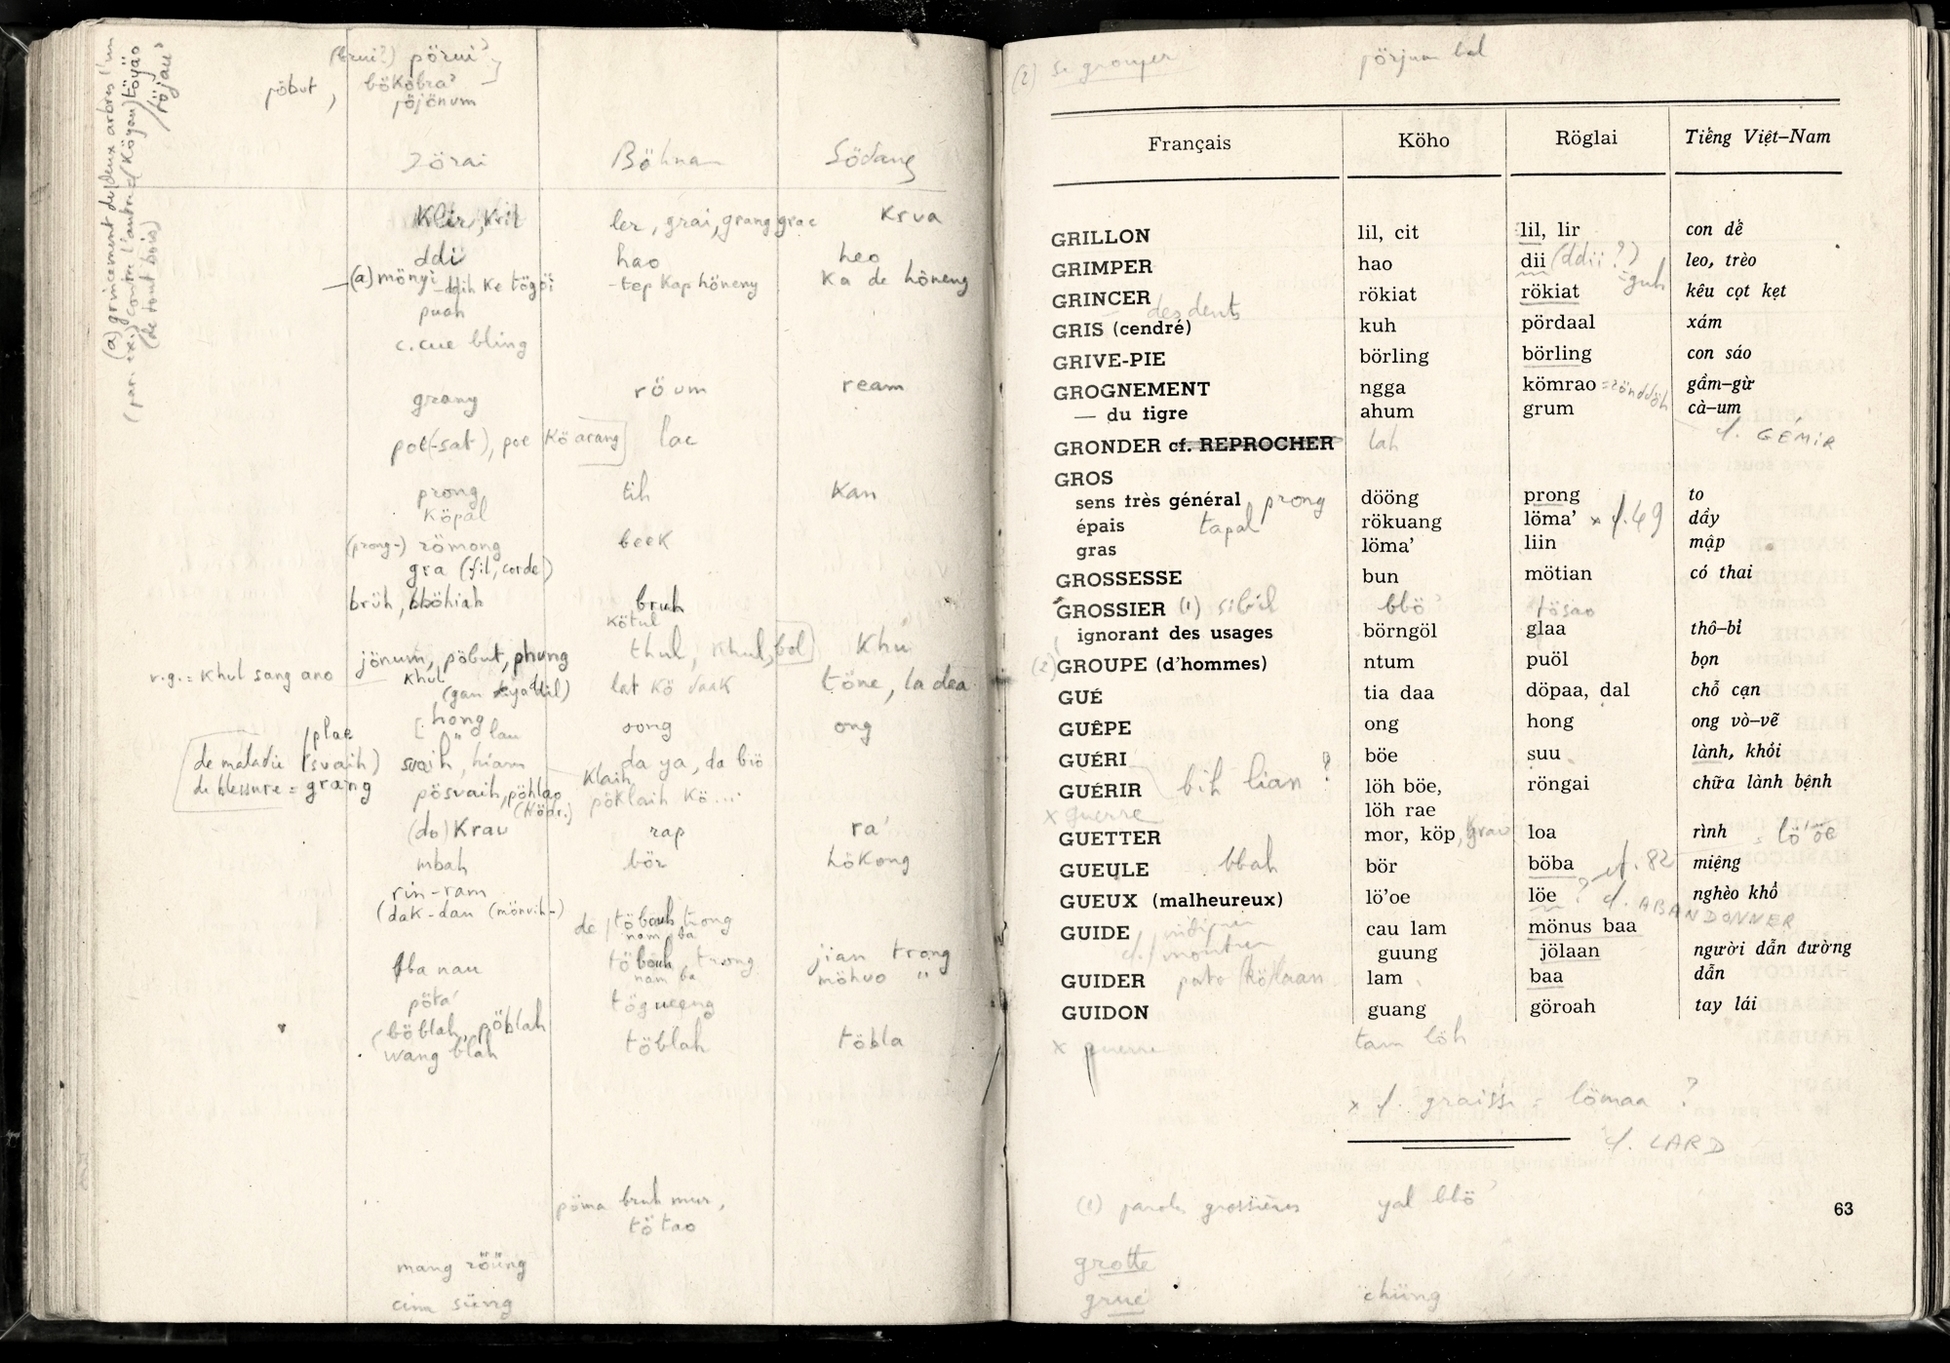 (brui?) pörui'
pöbut, bököbra'
pöjönum
(a) grincement de deux arbres l'un
(par. ex.) contre l'autre (Kögan) töyao
(de tout bois)
röjau'
Jörai Böhnar Södang
Klir, kril ler, grai, grang grac krva
ddi hao heo
(a) mönyi ddih ke tögöi -tep kap höneng ka de höneng
puah
c. cue bling
grang röum ream
poe(-sat), poe kö arang lae
prong tih kan
köpal
(prong-) römong beek
gra (fil, corde)
brüh, bböhiah bruh
kötul
jönum, pöbut, phung thul, khul, bol khu
v.g. = khul sang ano khul
lat kö daak töne, la dea
hong song ong
" lau
/plae
de maladie (svaih) svaih, hiam da ya, da biö
de blessure = grang pösvaih, pöhlao klaih
(Hödr.) pöklaih kö...
(do) Krau rap ra'
mbah bör hökong
rin-ram
(dak-dau (mönvih-)
de töbouh trong
nam ba
ba nau töbouh trong jian trong
nam ba möhuo "
pötá tögueeng
(böblah, pöblah töblah töbla
wang blah
pöma bruh mur,
tötao
mang röüng
cim süng
(2) se grouper pörjum bol
Français Köho Röglai Tiếng Việt–Nam
GRILLON lil, cit lil, lir con dế
GRIMPER hao dii (ddii ?) leo, trèo
GRINCER des dents rökiat rökiat =guh kêu cọt kẹt
GRIS (cendré) kuh pördaal xám
GRIVE-PIE börling börling con sáo
GROGNEMENT ngga kömrao = rönddöh gầm–gừ
— du tigre ahum grum cà–um
cf. GÉMIR
GRONDER cf. REPROCHER lah
GROS
sens très général prong dööng prong to
épais tapal rökuang löma' x cf. 49 dầy
gras löma' liin mập
GROSSESSE bun mötian có thai
GROSSIER (1) sibil bbö' tösao
ignorant des usages börngöl glaa thô–bỉ
(2) GROUPE (d'hommes) ntum puöl bọn
GUÉ tia daa döpaa, dal chỗ cạn
GUÊPE ong hong ong vò–vẽ
GUÉRI böe suu lành, khỏi
bih lian ?
GUÉRIR löh böe, röngai chữa lành bệnh
löh rae
x guerre
GUETTER mor, köp, krau loa rình
GUEULE bbah bör böba cf. 82 miệng
= lö'öe
GUEUX (malheureux) lö'oe löe ? cf. ABANDONNER nghèo khổ
GUIDE cau lam mönus baa
cf. montrer guung jölaan người dẫn đường
GUIDER lam baa dẫn
GUIDON guang göroah tay lái
x guerre tam löh
x cf. graisse = lömaa ?
cf. LARD
(1) paroles grossières yal bbö'
63
grotte
grue chüng